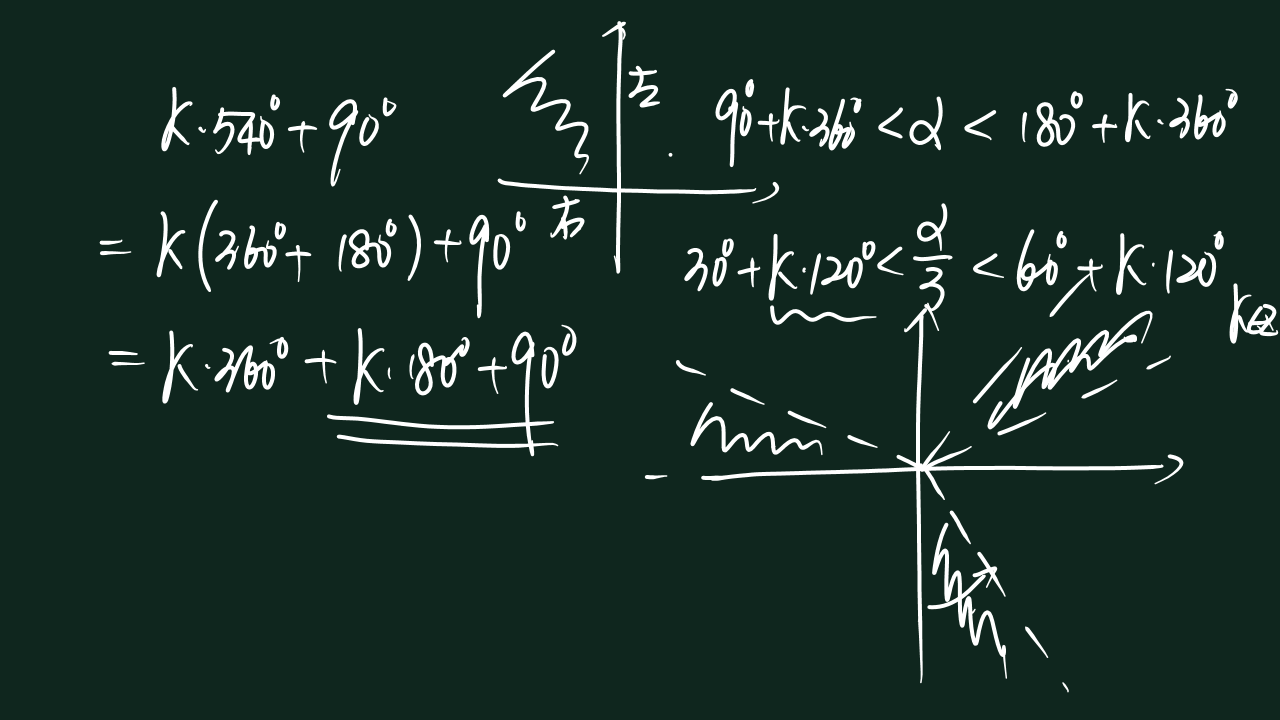 k·540°+90°
=k(360°+180°)+90°
=k·360°+k·180°+90°
左
右
90°+k·360°<α<180°+k·360°
30°+k·120°<α/3<60°+k·120°
k∈Z